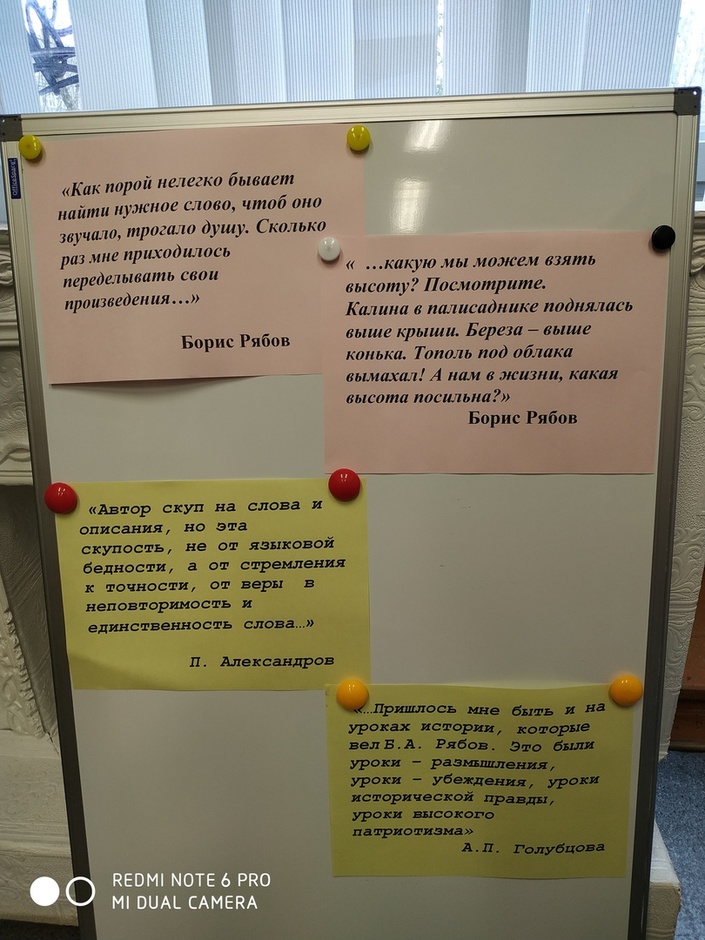 «Как порой нелегко бывает
найти нужное слово, чтоб оно
звучало, трогало душу. Сколько
раз мне приходилось
переделывать свои
произведения...»
Борис Рябов
« ...какую мы можем взять
высоту? Посмотрите.
Калина в палисаднике поднялась
выше крыши. Береза – выше
конька. Тополь под облака
вымахал! А нам в жизни, какая
высота посильна?»
Борис Рябов
«Автор скуп на слова и
описания, но эта
скупость, не от языковой
бедности, а от стремления
к точности, от веры в
неповторимость и
единственность слова…»
П. Александров
«…Пришлось мне быть и на
уроках истории, которые
вел Б.А. Рябов. Это были
уроки – размышления,
уроки – убеждения, уроки
исторической правды,
уроки высокого
патриотизма»
А.П. Голубцова
REDMI NOTE 6 PRO
MI DUAL CAMERA